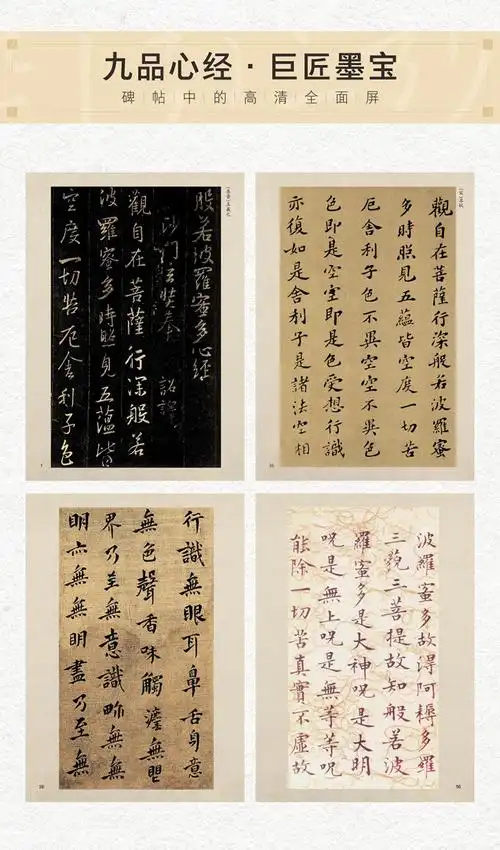 九品心经·巨匠墨宝
碑帖中的高清全面屏
般若波羅蜜多心經
沙門玄奘奉 詔譯
觀自在菩薩行深般若
波羅蜜多時照見五蘊皆
空度一切苦厄舍利子色
觀自在菩薩行深般若波羅蜜
多時照見五蘊皆空度一切苦
厄舍利子色不異空空不異色
色即是空空即是色受想行識
亦復如是舍利子是諸法空相
行識無眼耳鼻舌身意
無色聲香味觸法無眼
界乃至無意識界無無
明亦無無明盡乃至無
波羅蜜多故得阿耨多羅
三藐三菩提故知般若波
羅蜜多是大神呪是大明
呪是無上呪是無等等呪
能除一切苦真實不虛故